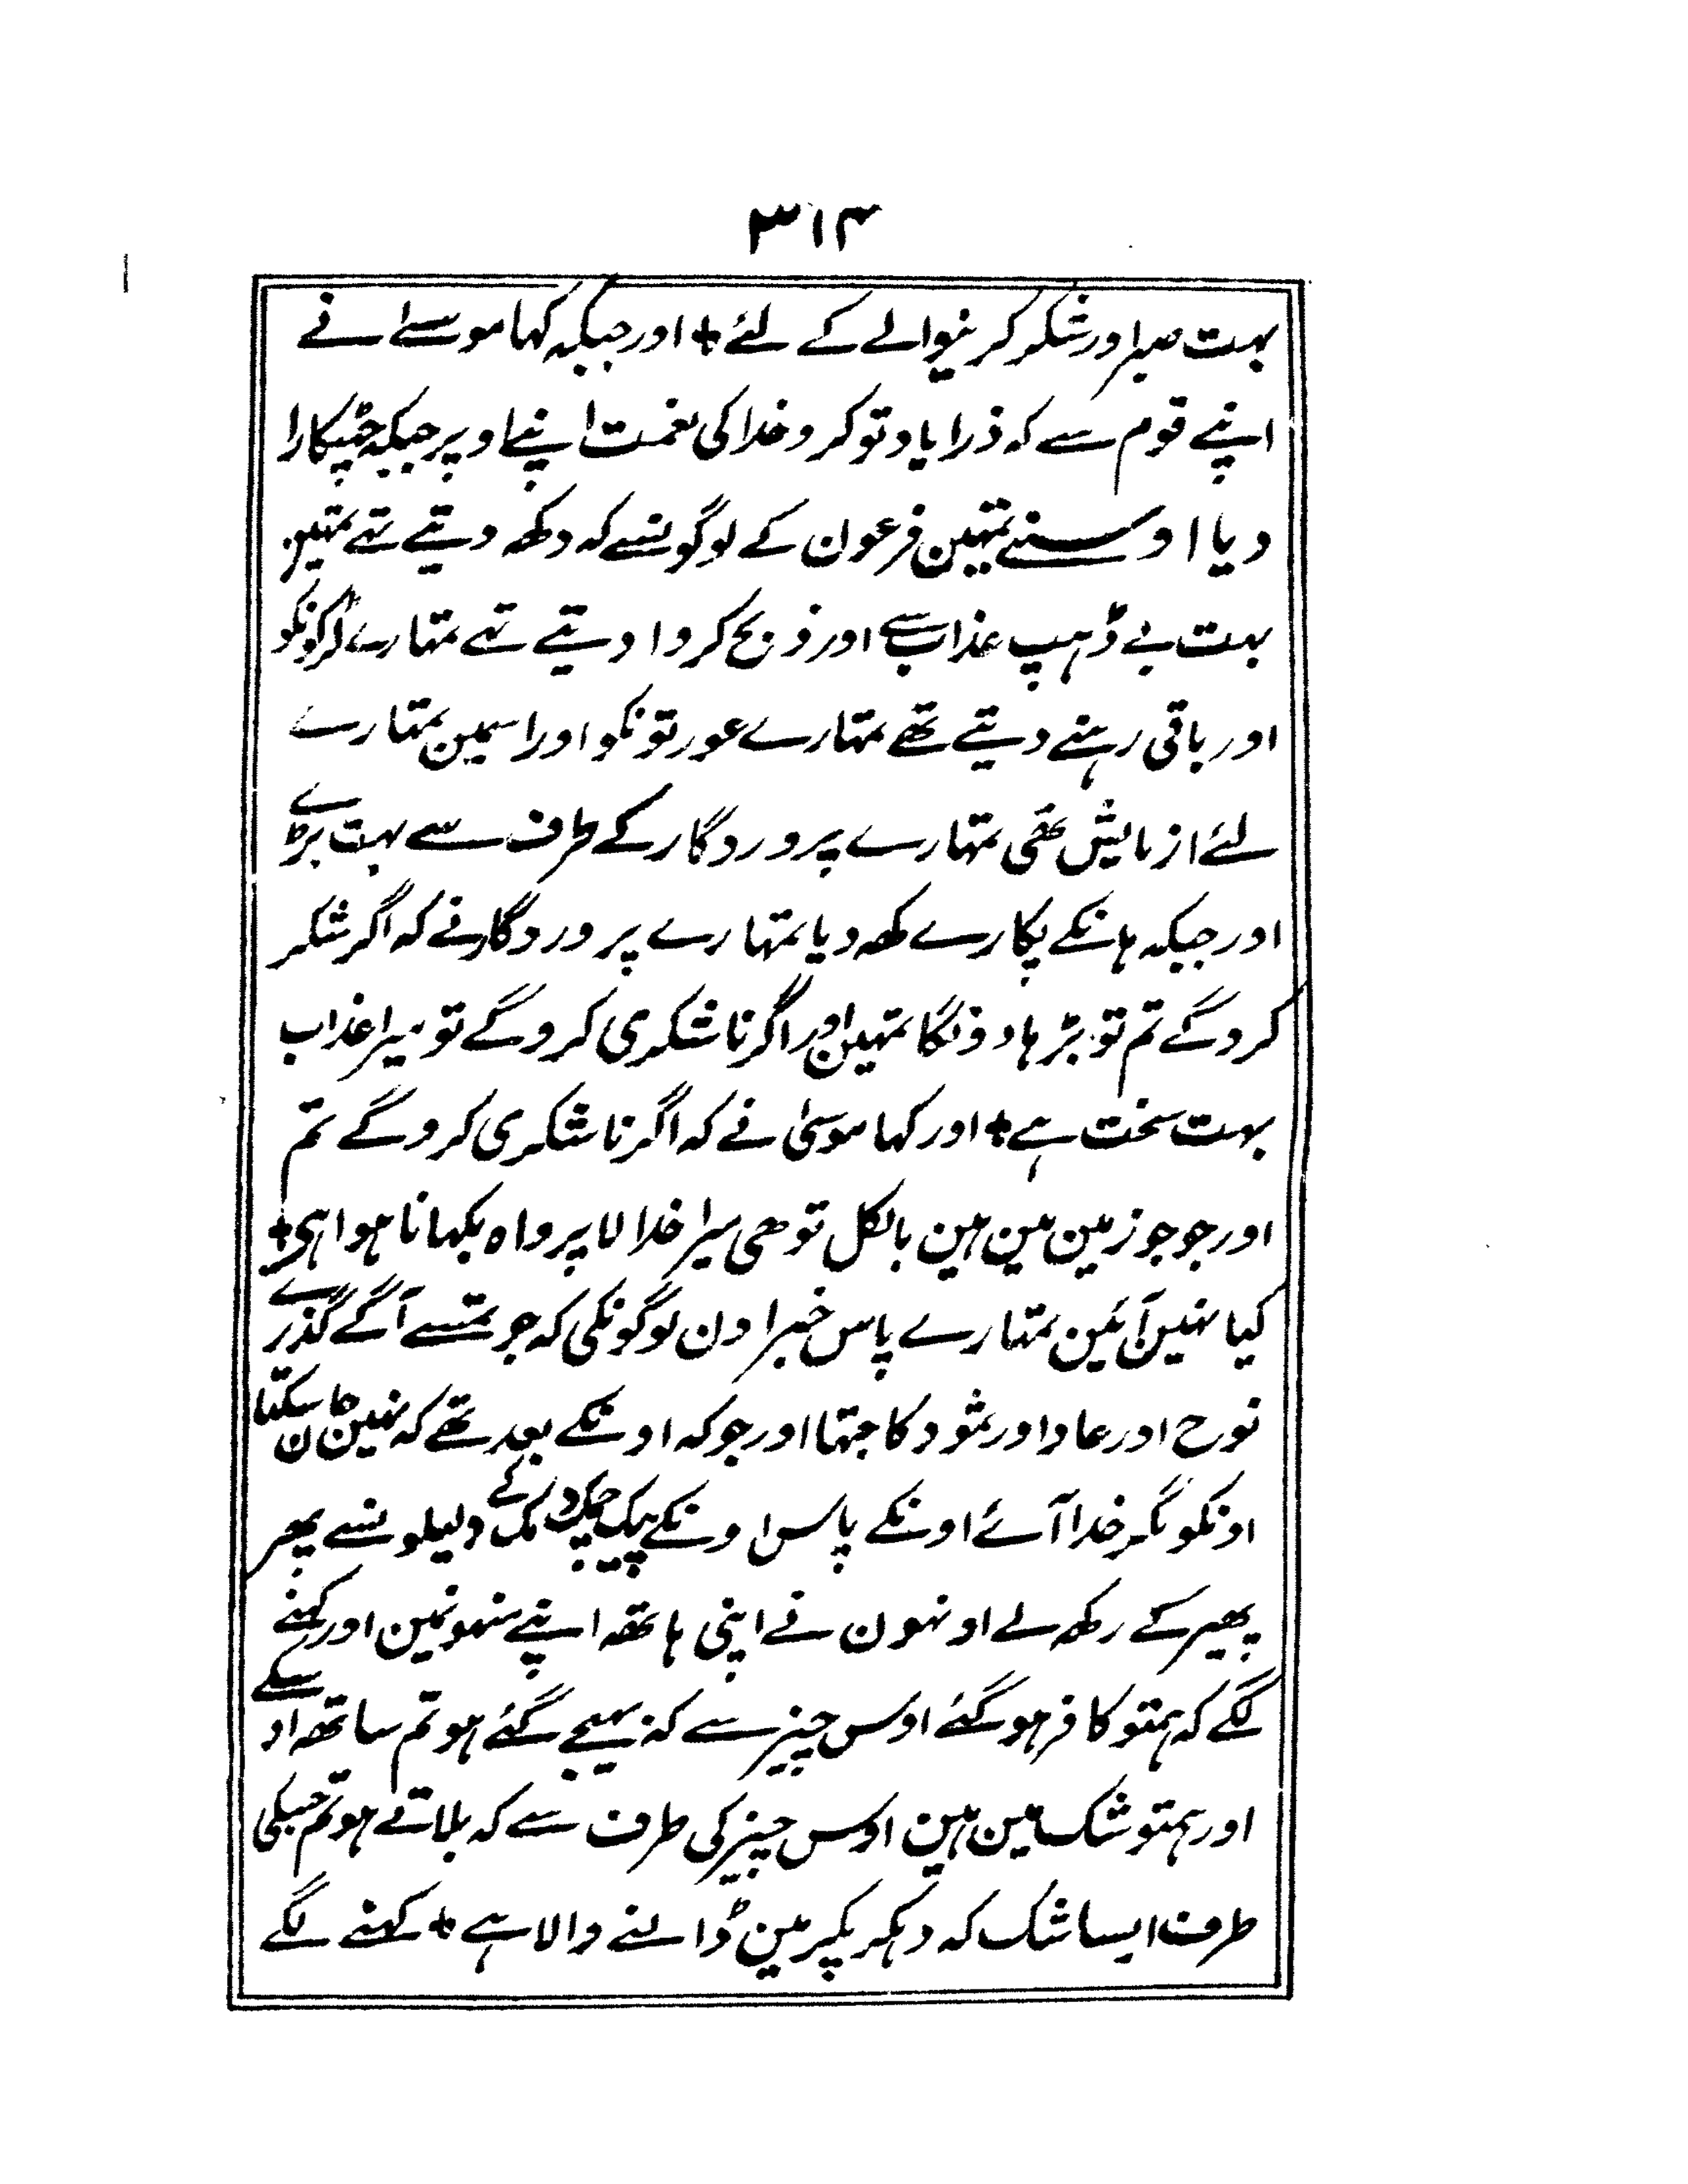 ۳۱۴
بہت صبر اور شکر کرنیوالے کے لئے + اور جبکہ کہا موسے نے
اپنے قوم سے کہ ذرا یاد تو کرو خدا کی نعمت اپنے اوپر جبکہ چٹکارا
دیا اوسنے تمہین فرعون کے لوگونسے کہ دکھ دیتے تہے تمہین
بہت بے ڈہپ عذاب سے اور ذبح کروا دیتے تہے تمہارے لڑکونکو
اور باقی رہنے دیتے تھے تمہارے عورتونکو اور اسمین تمہارے
لئے ازمایش تھی تمہارے پروردگار کے طرف سے بہت بڑے
اور جبکہ ہانکے پکارے کھہ دیا تمہارے پروردگارنے کہ اگر شکر
کروگے تم تو بڑہا دونگا تمہین اور اگر ناشکری کروگے تو میرا عذاب
بہت سخت ہے + اور کہا موسیٰ نے کہ اگر ناشکری کروگے تم
اور جو جو زمین مین ہین بالکل تو ھی میرا خدا لا پرواہ بکہانا ہوا ہی +
کیا نہین آئین تمہارے پاس خبر اون لوگونکی کہ جو تمسے آگے گذرے
نوح اور عاد اور ثمود کا جتہا اور جو کہ اونکے بعد تھے کہ نہین جان سکتا
اونکو مگر خدا آئے اونکے پاس اونکے پیک چمک دمک کے دلیلونسے پھر
پھیر کے رکھ لے اونہون نے اپنی ہاتھہ اپنے منہونمین اور کہنے
لگے کہ ہمتو کافر ہوگئے اوس چیز سے کہ بہیجے گئے ہو تم ساتھہ اوسکے
اور ہمتو شک مین ہین اوس چیز کی طرف سے کہ بلاتے ہو تم جسکی
طرف ایسا شک کہ دہکر پکر مین ڈالنے والا ہے + کہنے لگے